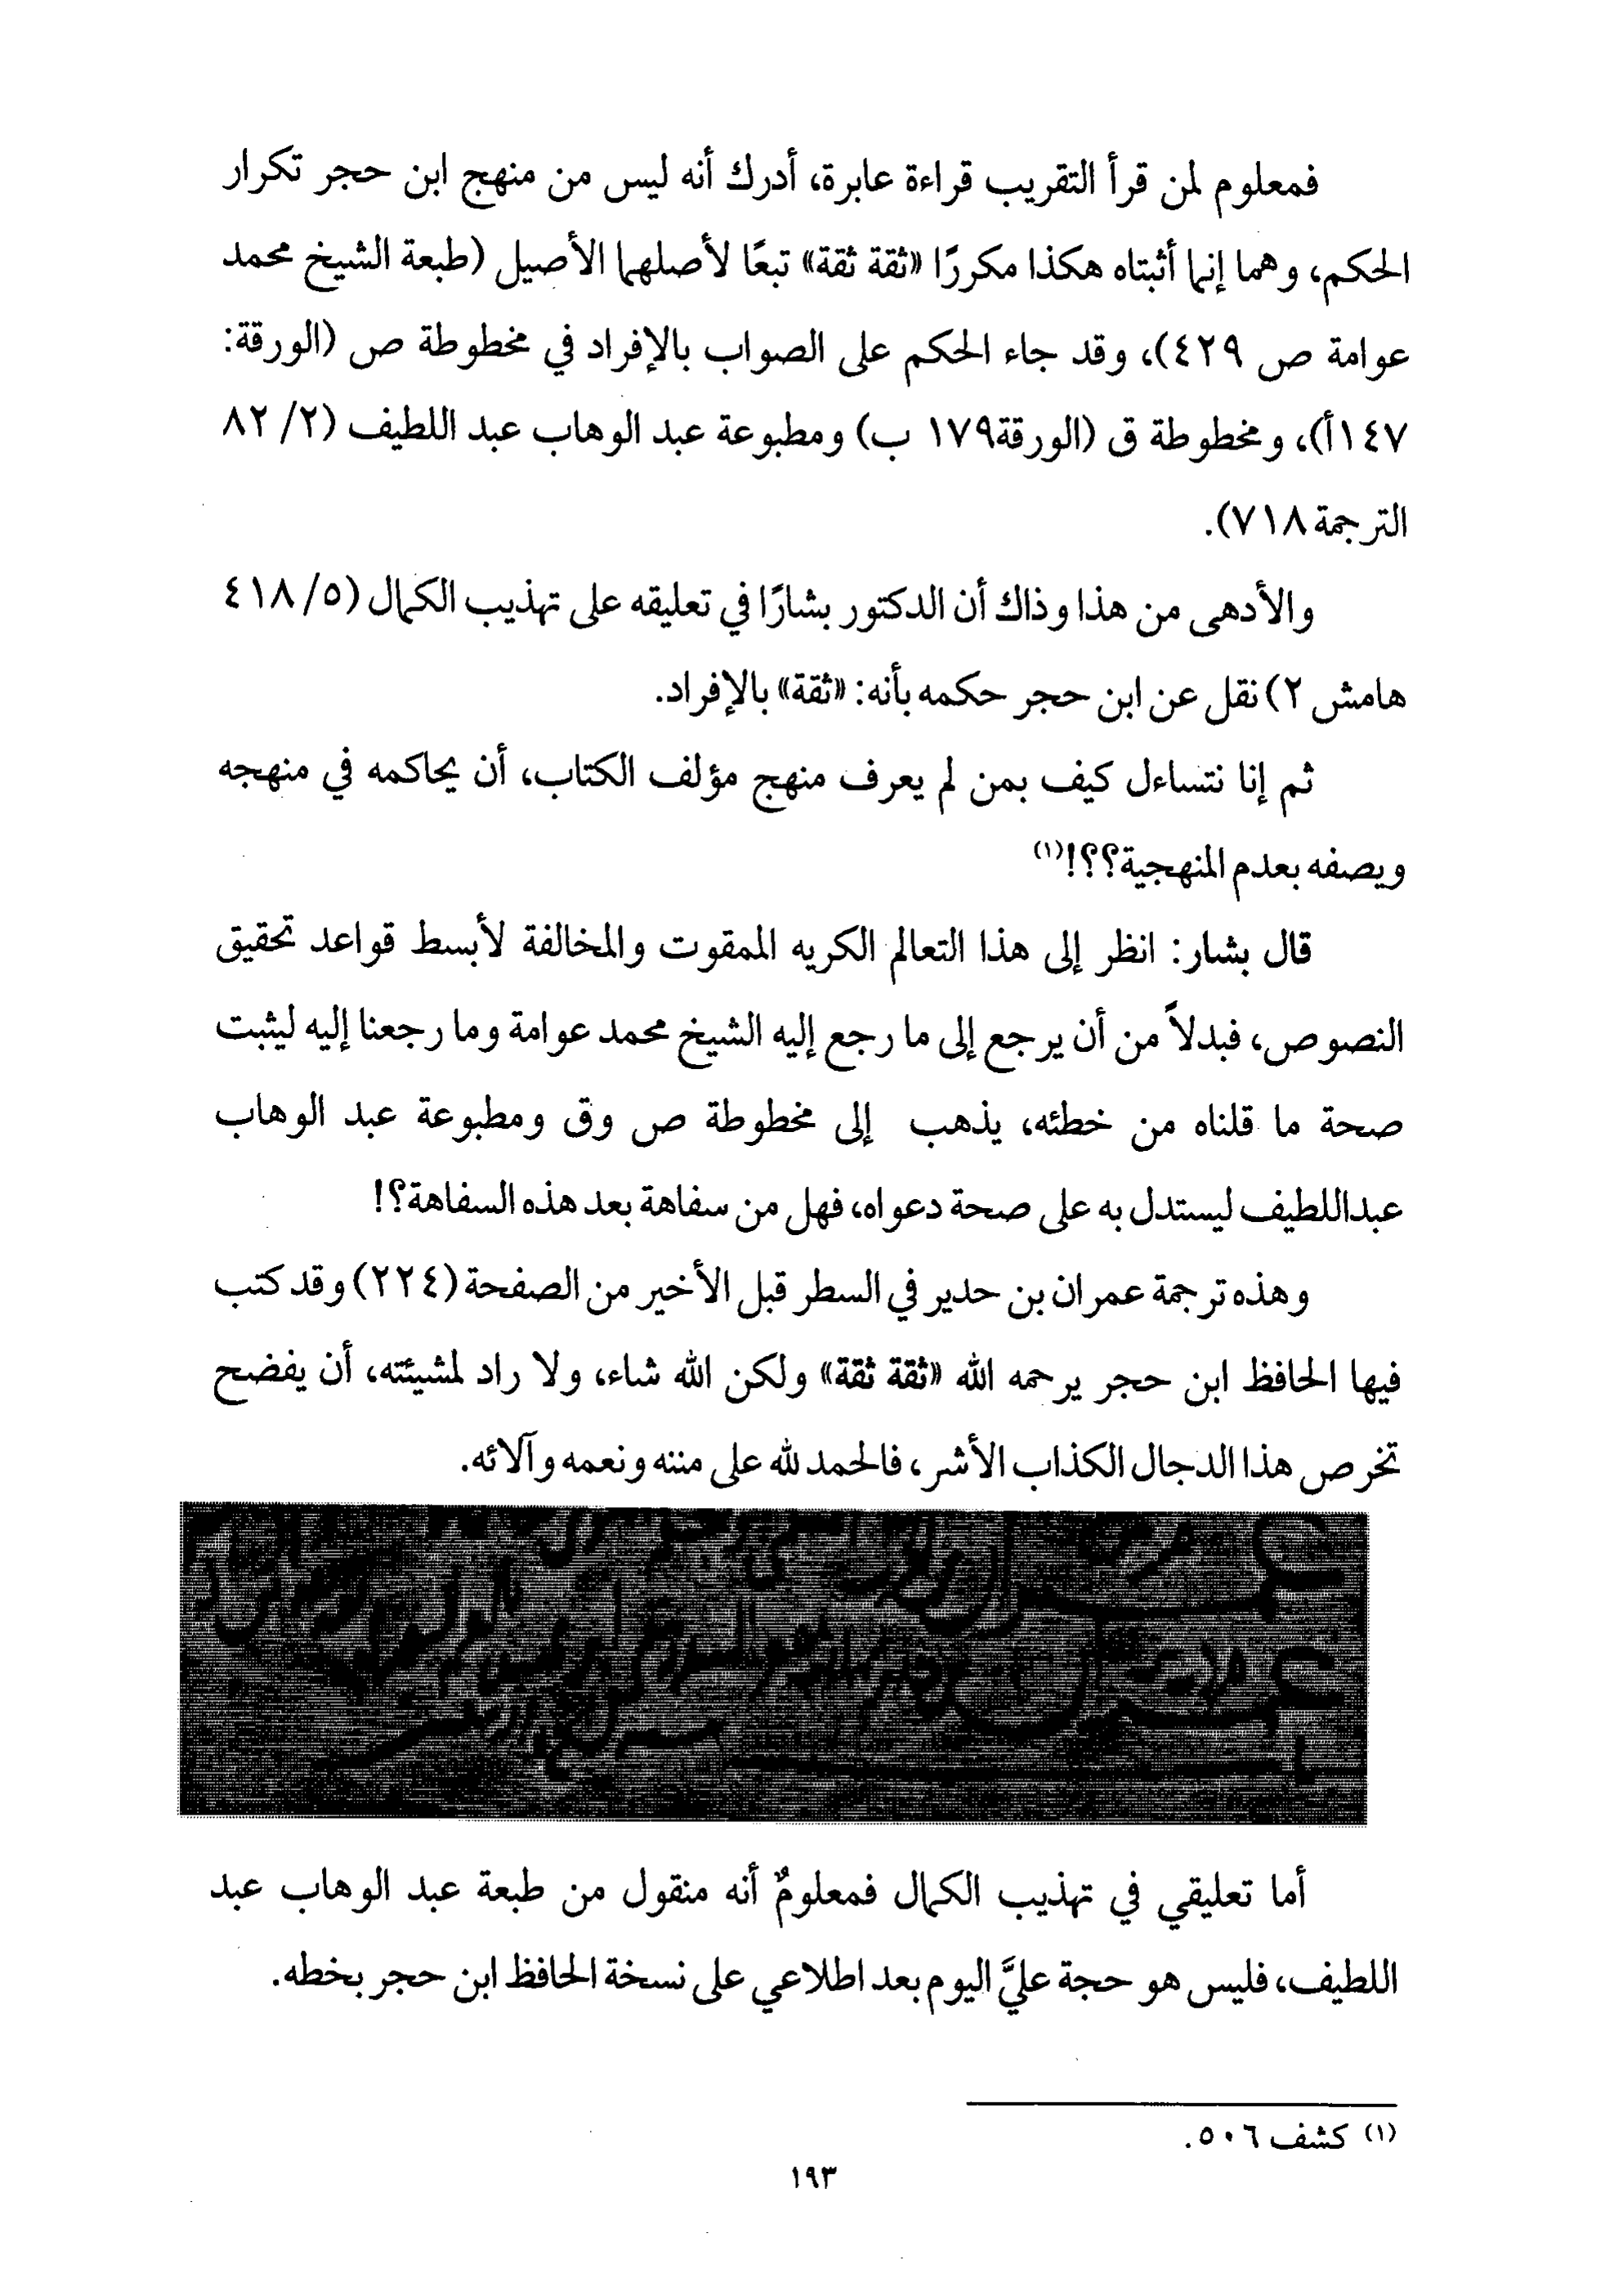 فمعلوم لمن قرأ التقريب قراءة عابرة، أدرك أنه ليس من منهج ابن حجر تكرار
الحكم، وهما إنما أثبتاه هكذا مكررًا «ثقة ثقة» تبعًا لأصلهما الأصيل (طبعة الشيخ محمد
عوامة ص ٤٢٩)، وقد جاء الحكم على الصواب بالإفراد في مخطوطة ص (الورقة:
١٤٧أ)، ومخطوطة ق (الورقة١٧٩ ب) ومطبوعة عبد الوهاب عبد اللطيف (٢/ ٨٢
الترجمة ٧١٨).
والأدهى من هذا وذاك أن الدكتور بشارًا في تعليقه على تهذيب الكمال (٥/ ٤١٨
هامش ٢) نقل عن ابن حجر حكمه بأنه: «ثقة» بالإفراد.
ثم إنا نتساءل كيف بمن لم يعرف منهج مؤلف الكتاب، أن يحاكمه في منهجه
ويصفه بعدم المنهجية؟؟!(١)
قال بشار: انظر إلى هذا التعالم الكريه الممقوت والمخالفة لأبسط قواعد تحقيق
النصوص، فبدلاً من أن يرجع إلى ما رجع إليه الشيخ محمد عوامة وما رجعنا إليه ليثبت
صحة ما قلناه من خطئه، يذهب إلى مخطوطة ص وق ومطبوعة عبد الوهاب
عبداللطيف ليستدل به على صحة دعواه، فهل من سفاهة بعد هذه السفاهة؟!
وهذه ترجمة عمران بن حدير في السطر قبل الأخير من الصفحة (٢٢٤) وقد كتب
فيها الحافظ ابن حجر يرحمه الله «ثقة ثقة» ولكن الله شاء، ولا راد لمشيئته، أن يفضح
تخرص هذا الدجال الكذاب الأشر، فالحمد لله على مننه ونعمه وآلائه.
أما تعليقي في تهذيب الكمال فمعلومٌ أنه منقول من طبعة عبد الوهاب عبد
اللطيف، فليس هو حجة عليَّ اليوم بعد اطلاعي على نسخة الحافظ ابن حجر بخطه.
(١) كشف ٥٠٦.
١٩٣